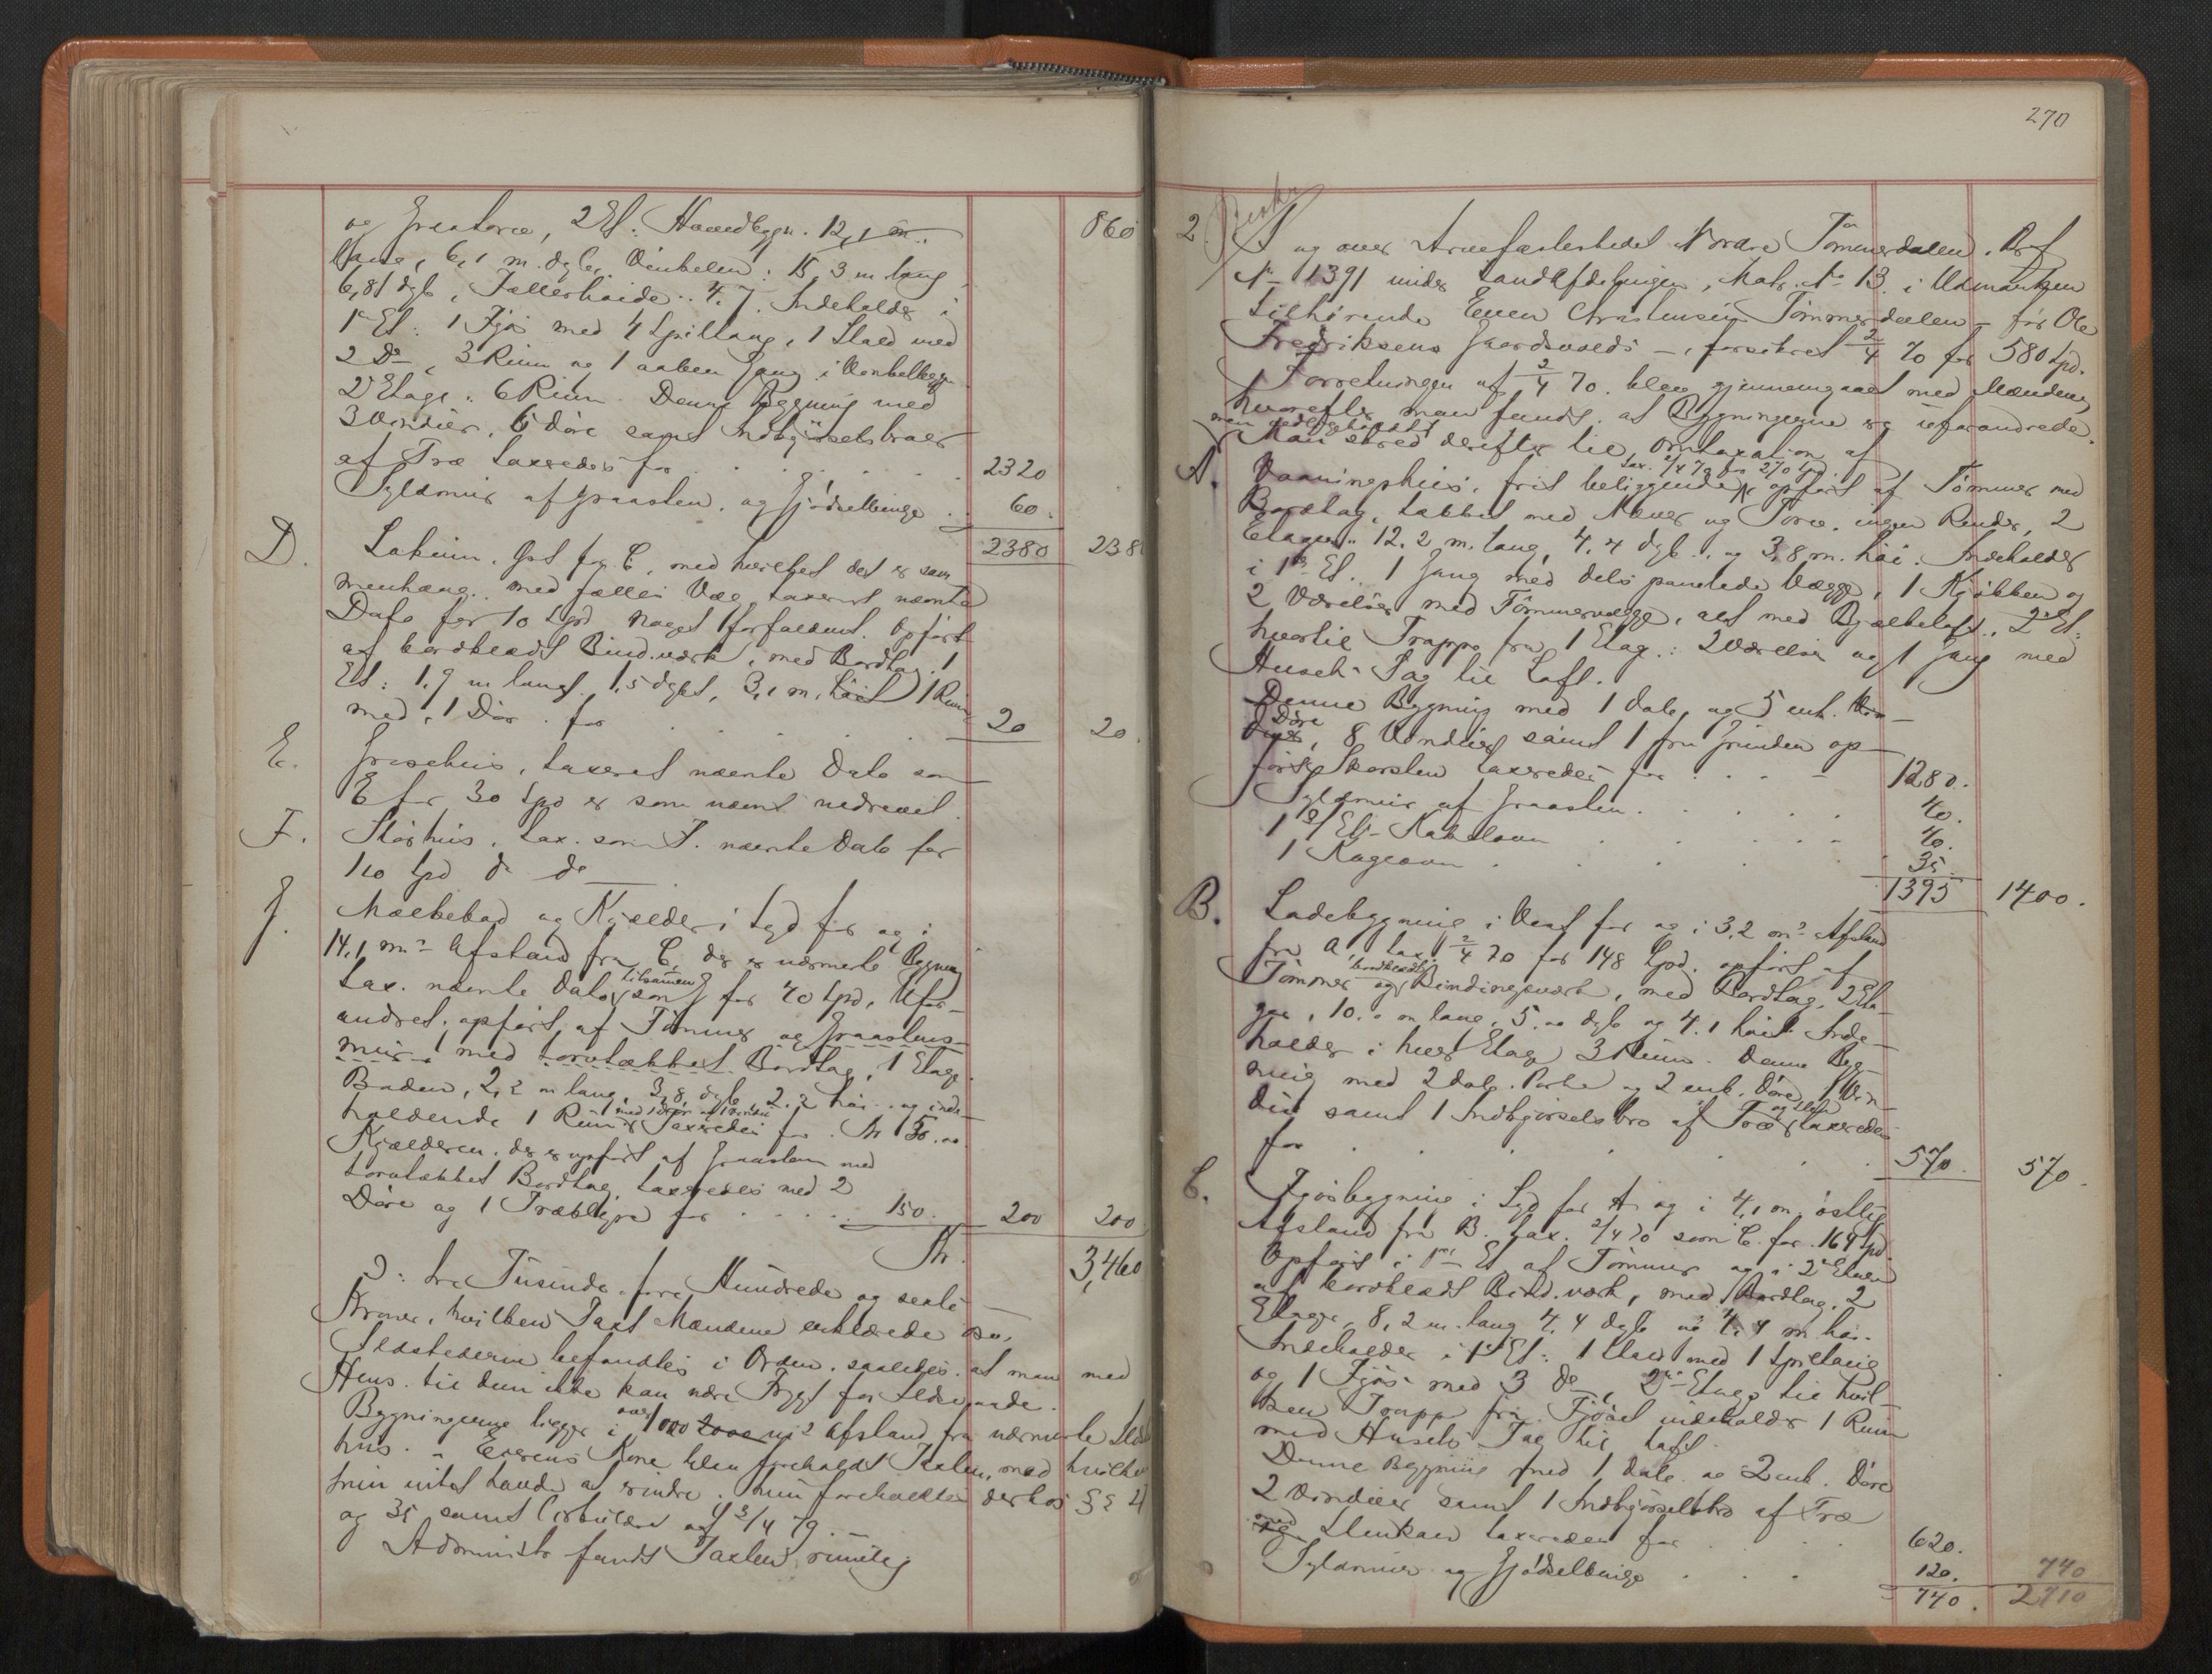 og Græstorv, 2 Et: Hovedbygn. 12,1 m. 860
lang, 6,1 m. dyb, Vinkelen: 15,3 m lang
6,81 dyb, Fælleshøide: 4,7. Indeholder i
1ste Et: 1 Fjøs med 4 Spiltaug, 1 Stald med
2 Do, 3 Rum og 1 aaben Gang i Vinkelbygn
2den Etage: 6 Rum. Denne Bygning med
3 Vinduer, 6 Døre samt Indkjørselsbroer
af Træ taxeredes for 2320
Syldmur af Graasten og Gjødselbinge 60.
2380 2380
D. Lokum, Øst for C, med hvilket det er sam-
menhæng. med fælles Væg taxeret nævnte
Dato for 10 Spd noget forfaldent. Opført
af bordklædt Bind.værk, med Bordtag. 1
Et: 1,9 m langt, 1,5 dybt, 3,1 m. høit 1 Rum
med 1 Dør for 20 20.
E. Grisehus, taxeret nævnte Dato som
E for 30 Spd er som nævnt nedrevet.
F. Størhus, tax. som F. nævnte Dato for
110 Spd do do
G. Mælkebod og Kjælder i Syd for og i
14,1 m's Afstand fra C, der er nærmeste Bygning
tax. nævnte Dato tilsammen som G for 40 Spd, Ufor-
andret, opført af Tømmer og Graastens-
mur med torvtækket Bordtag, 1 Etage.
Boden, 2,2 m lang, 3,8 dyb, 2,2 høi og inde-
holdende 1 Rum med 1 Dør og 1 Vindu taxeredes for Kr 50.00
Kjælderen, der er opført af Graasten med
torvtækket Bordtag, taxeredes med 2
Døre og 1 Træbling for 150. 200 200
Kr. 3,460
ɔ: tre Tusinde fire Hundrede og seksti
Kroner, hvilken Taxt Mændene erklærede
Ildstederne befandtes i Orden, saaledes at man med
Hens. til dem ikke kan nære Frygt for Ildsvaade.
Bygningerne ligger i over 1000 2000 m's Afstand fra nærmeste
hus. - Eierens Kone blev foreholdt Taxten, mod hvilken
hun intet havde at erindre. Hun foreholdtes derhos §§ 21
og 35 samt Cirkulære af 13/4 79.
Administr fandt Taxten rimelig
270
2. I og over Arvefæstestedet Nordre Tømmerdalen, Brf
No 1391 under Landafdelingen, Matr. No 13. i Udmarken
tilhørende Even Christensen Tømmerdalen - før Ole
Fredriksens Gaardvolds -, forsikret 2/4 70 for 580 Spd.
Forretningen af 2/4 70. blev gjennemgaaet med Mændene,
hvorefter man fandt, at Bygningerne er uforandrede.
men vedligeholdt
Man skred derefter til Omtaxation af
A. Vaaningshus, frit beliggende, tax. 2/4 70 for 270 Spd. opført af Tømmer med
Bordtag, tækket med Næver og Torv, ingen Render, 2
Etager: 12,2 m. lang, 4,4 dyb og 3,8 m. høi. Indeholder
i 1ste Et. 1 Gang med dels panelede Vægge, 1 Kjøkken og
2 Værelser med Tømmervægge, alt med Bjælkeloft. 2den Et.
hvortil Trappe fra 1 Etag.: 2 Værelser og 1 Gang med
Husets Tag til Loft.
Denne Bygning med 1 dob. og 5 enk.
Døre, 8 Vinduer samt 1 fra Grunden op-
ført Skorsten taxeredes for 1280.
Syldmur af Graasten 40.
1 2/Et- Kakelovn 40.
1 Kogeovn 35.
1395 1400.
B. Ladebygning i Vest for og i 3,2 m's Afstand
fra A, tax. 2/4 70 for 148 Spd. opført af
Tømmer og bordklædt Bindingsværk, med Bordtag, 2 Eta-
ger, 10.0 m lang, 5.00 dyb og 4.1 høi. Inde-
holder i hver Etag 3 Rum. Denne Byg-
ning med 2 dob. Porte og 2 enk. Døre, 1 Vin-
du samt 1 Indkjørselsbro af Træ taxeredes
for 570. 570.
C. Fjøsbygning i Syd for A og i 4,1 m. østlig
Afstand fra B. tax. 2/4 70 som C for 164 Spd.
Opført i 1ste Et. af Tømmer og i 2den Etage
af bordklædt Bind.værk, med Bordtag, 2
Etager, 8,2 m. lang 4,4 dyb og 4,4 m høi.
Indeholder i 1ste Et: 1 Stald med 1 Spiltaug
og 1 Fjøs med 3 do, 2den Etage til hvil-
ken Trappe fra Fjøset indeholder 1 Rum
med Husets Tag til Loft.
Denne Bygning med 1 dob. og 2 enk. Døre
2 Vinduer samt 1 Indkjørselsbro af Træ
med Stenkar taxeredes for 620.
Syldmur og Gjødselbinge 120. 740
740. 2710